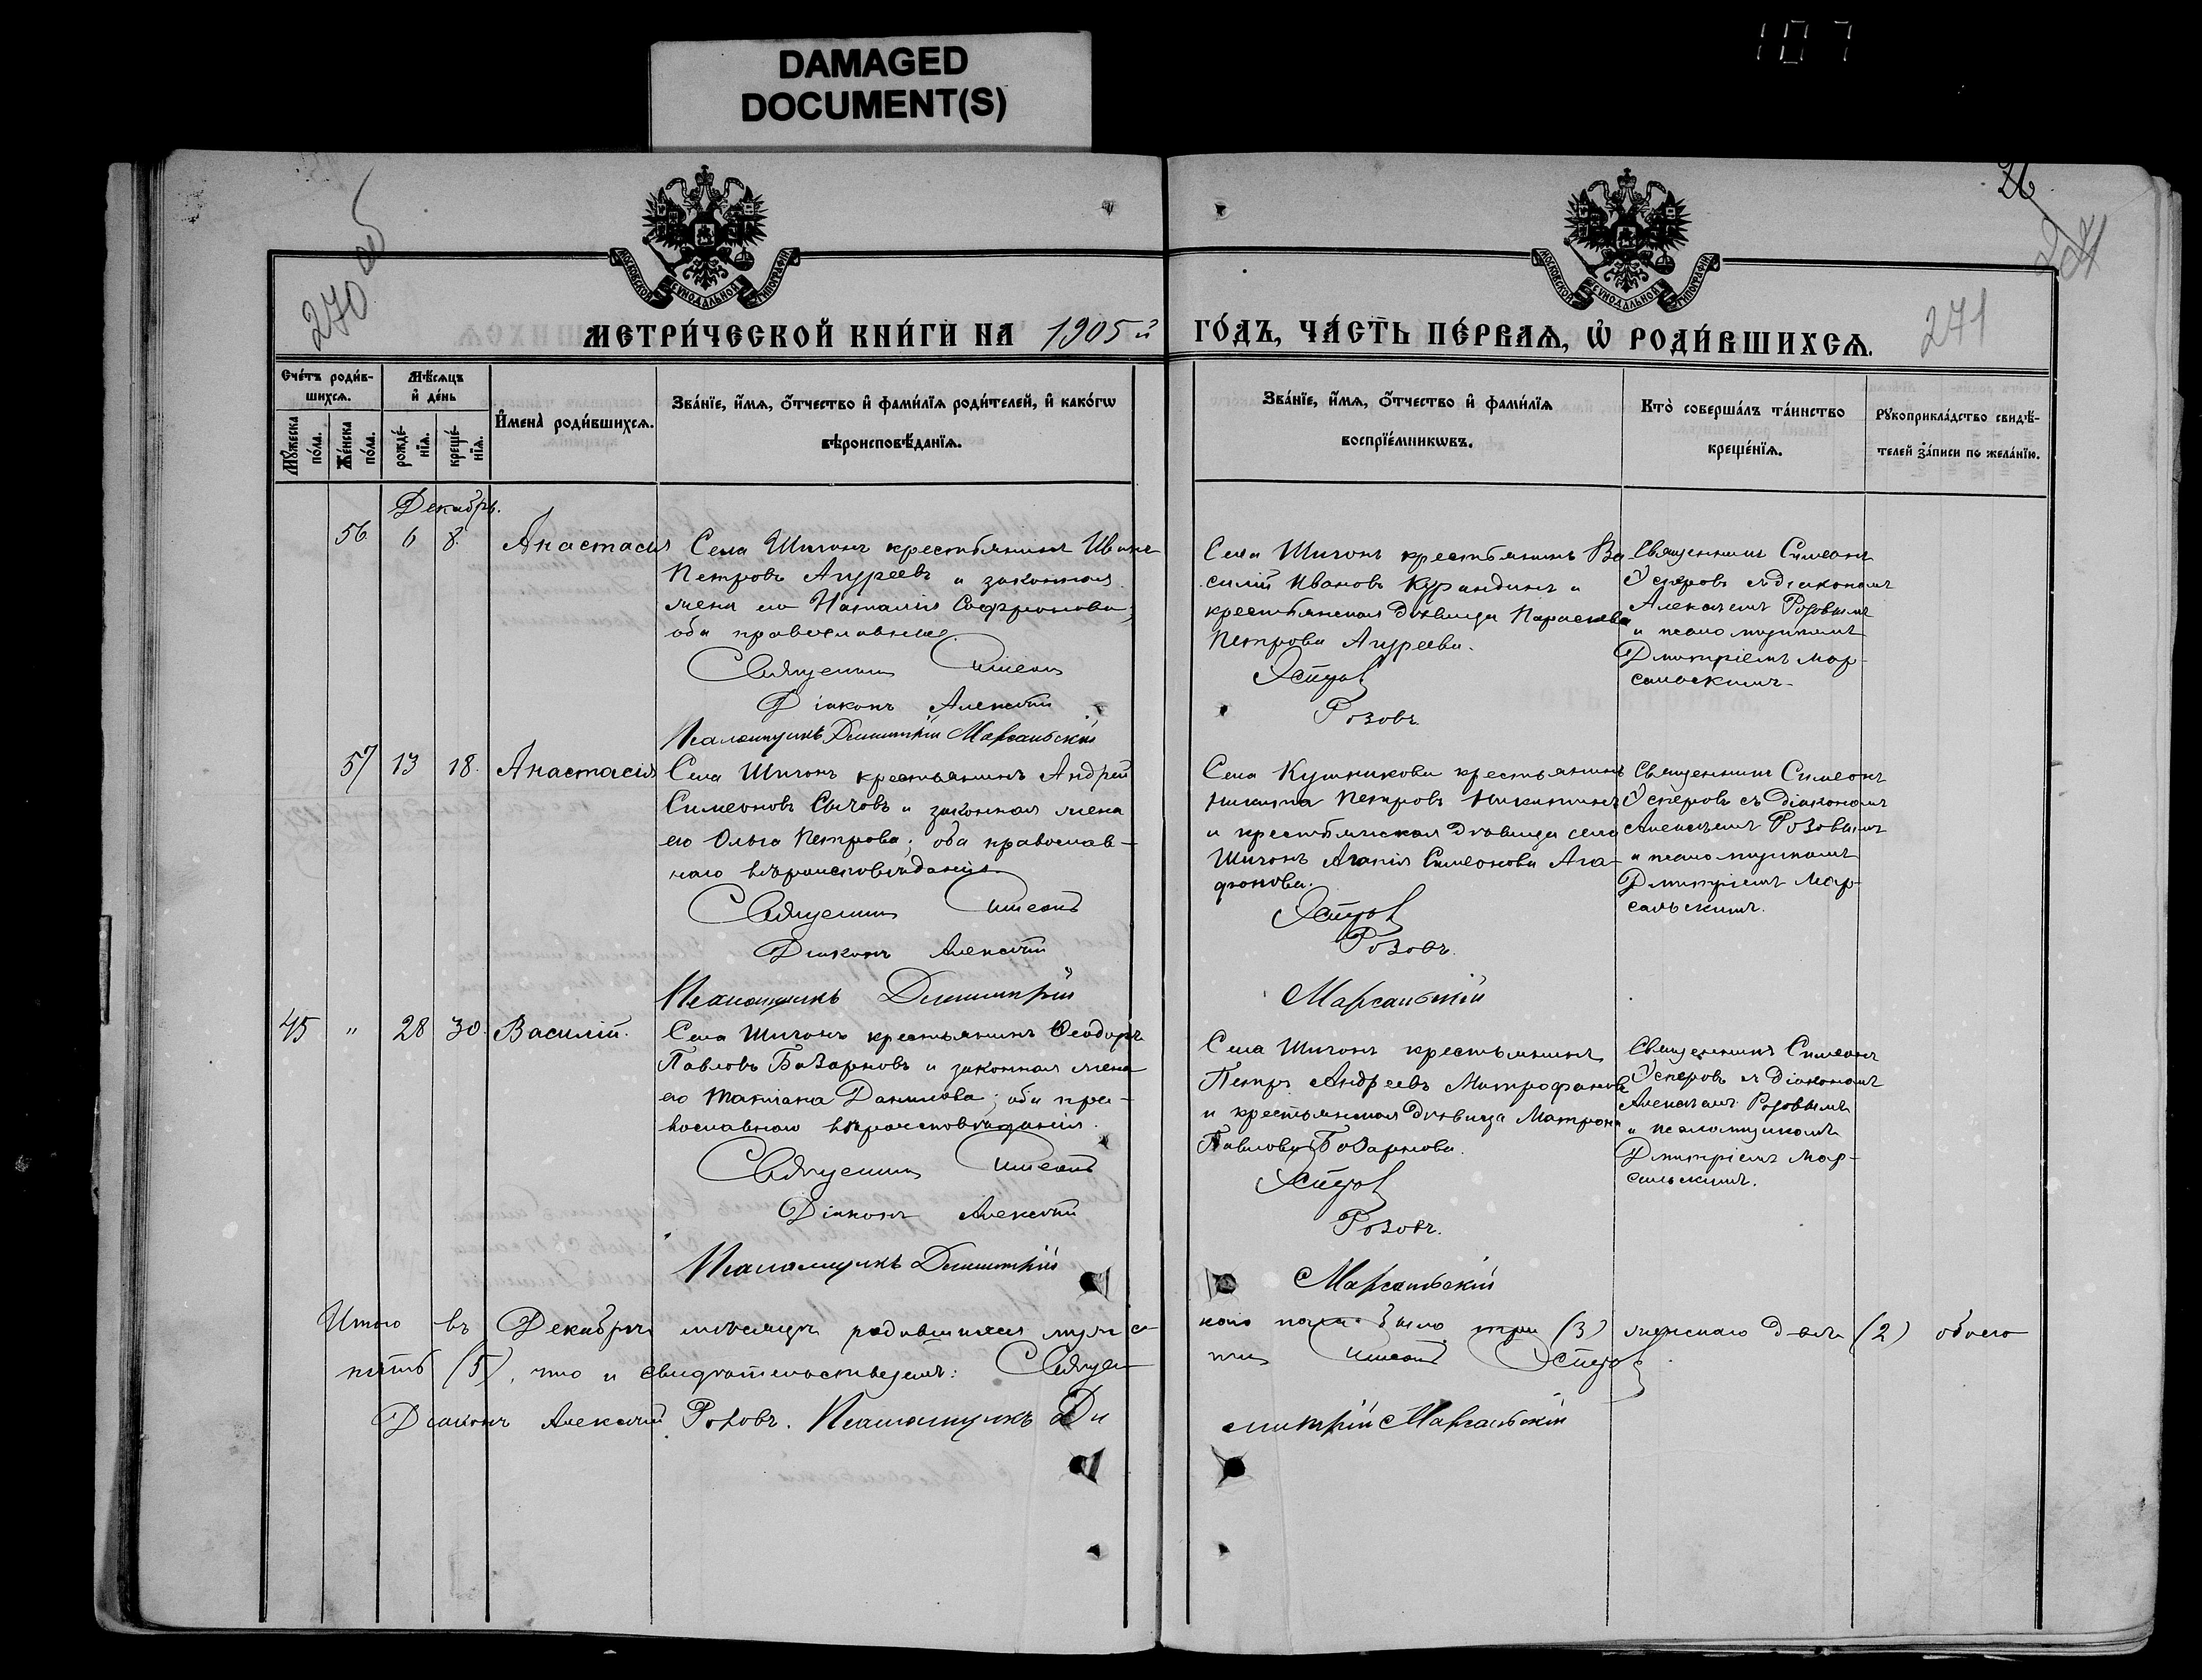 DAMAGED
DOCUMENT(S)
107
270 об
26
271
МОСКОВСКОЙ СѴНОДАЛЬНОЙ ТИПОГРАФІИ
МОСКОВСКОЙ СѴНОДАЛЬНОЙ ТИПОГРАФІИ
МЕТРИ́ЧЕСКОЙ КНИ́ГИ НА 1905 й ГО́ДЪ, ЧА́СТЬ ПЕ́РВАѦ, Ѡ҆ РОДИ́ВШИХСѦ.
Сче́тъ роди́в-
шихсѧ.
Мꙋ́жеска по́ла.
Же́нска по́ла.
Мѣ́сѧцъ
и҆ де́нь
рожде́-
нїѧ.
креще́-
нїѧ.
И҆мена̀ роди́вшихсѧ.
Зва́нїе, и҆́мѧ, ѻ҆́тчество и҆ фами́лїѧ роди́телей, и҆ како́гѡ
вѣроисповѣ́данїѧ.
Зва́нїе, и҆́мѧ, ѻ҆́тчество и҆ фами́лїѧ
воспрїе́мникѡвъ.
Кто̀ соверша́лъ та́инство
креще́нїѧ.
Рꙋкоприкла́дство свидѣ́-
телей за́писи по жела́нїю.
Декабрь.
56 6 8. Анастасія
Села Шигонъ крестьянинъ Иванъ
Петровъ Агуреевъ и законная
жена его Наталія Софронова;
оба православные.
Священникъ Симеонъ
Діаконъ Алексѣй
Псаломщикъ Димитрій Марсальскій
Села Шигонъ крестьянинъ Ва
силій Ивановъ Курандинъ и
крестьянская дѣвица Параскева
Петрова Агуреева.
Розовъ
Священникъ Симеонъ
съ діакономъ
Алексѣемъ Розовымъ
и псаломщикомъ
Дмитріемъ Мар-
сальскимъ
57 13 18. Анастасія
Села Шигонъ крестьянинъ Андрей
Симеоновъ Сычовъ и законная жена
его Ольга Петрова; оба православ-
наго вѣроисповѣданія.
Священникъ Симеонъ
Діаконъ Алексѣй
Псаломщикъ Димитрій
Села Кушникова крестьянинъ
Никита Петровъ Никитинъ
и крестьянская дѣвица села
Шигонъ Агапія Симеонова Ага-
фонова.
Розовъ
Марсальскій
Священникъ Симеонъ
съ діакономъ
Алексѣемъ Розовымъ
и псаломщикомъ
Дмитріемъ Мар-
сальскимъ.
45 " 28 30. Василій.
Села Шигонъ крестьянинъ Ѳеодоръ
Павловъ Базарновъ и законная жена
его Татіана Данилова; оба пра-
вославнаго вѣроисповѣданія.
Священникъ Симеонъ
Діаконъ Алексѣй
Псаломщикъ Димитрій
Села Шигонъ крестьянинъ
Петръ Андреевъ Митрофановъ
и крестьянская дѣвица Матрона
Павлова Базарнова.
Розовъ.
Марсальскій
Священникъ Симеонъ
съ діакономъ
Алексѣемъ Розовымъ
и псаломщикомъ
Дмитріемъ Мар-
сальскимъ.
Итого въ Декабрѣ мѣсяцѣ родившихся мужс
каго пола было три (3) женскаго двѣ (2) обоего
пять (5), что и свидѣтельствуемъ: Священ
никъ Симеонъ
Діаконъ Алексѣй Розовъ. Псаломщикъ Ди
митрій Марсальскій